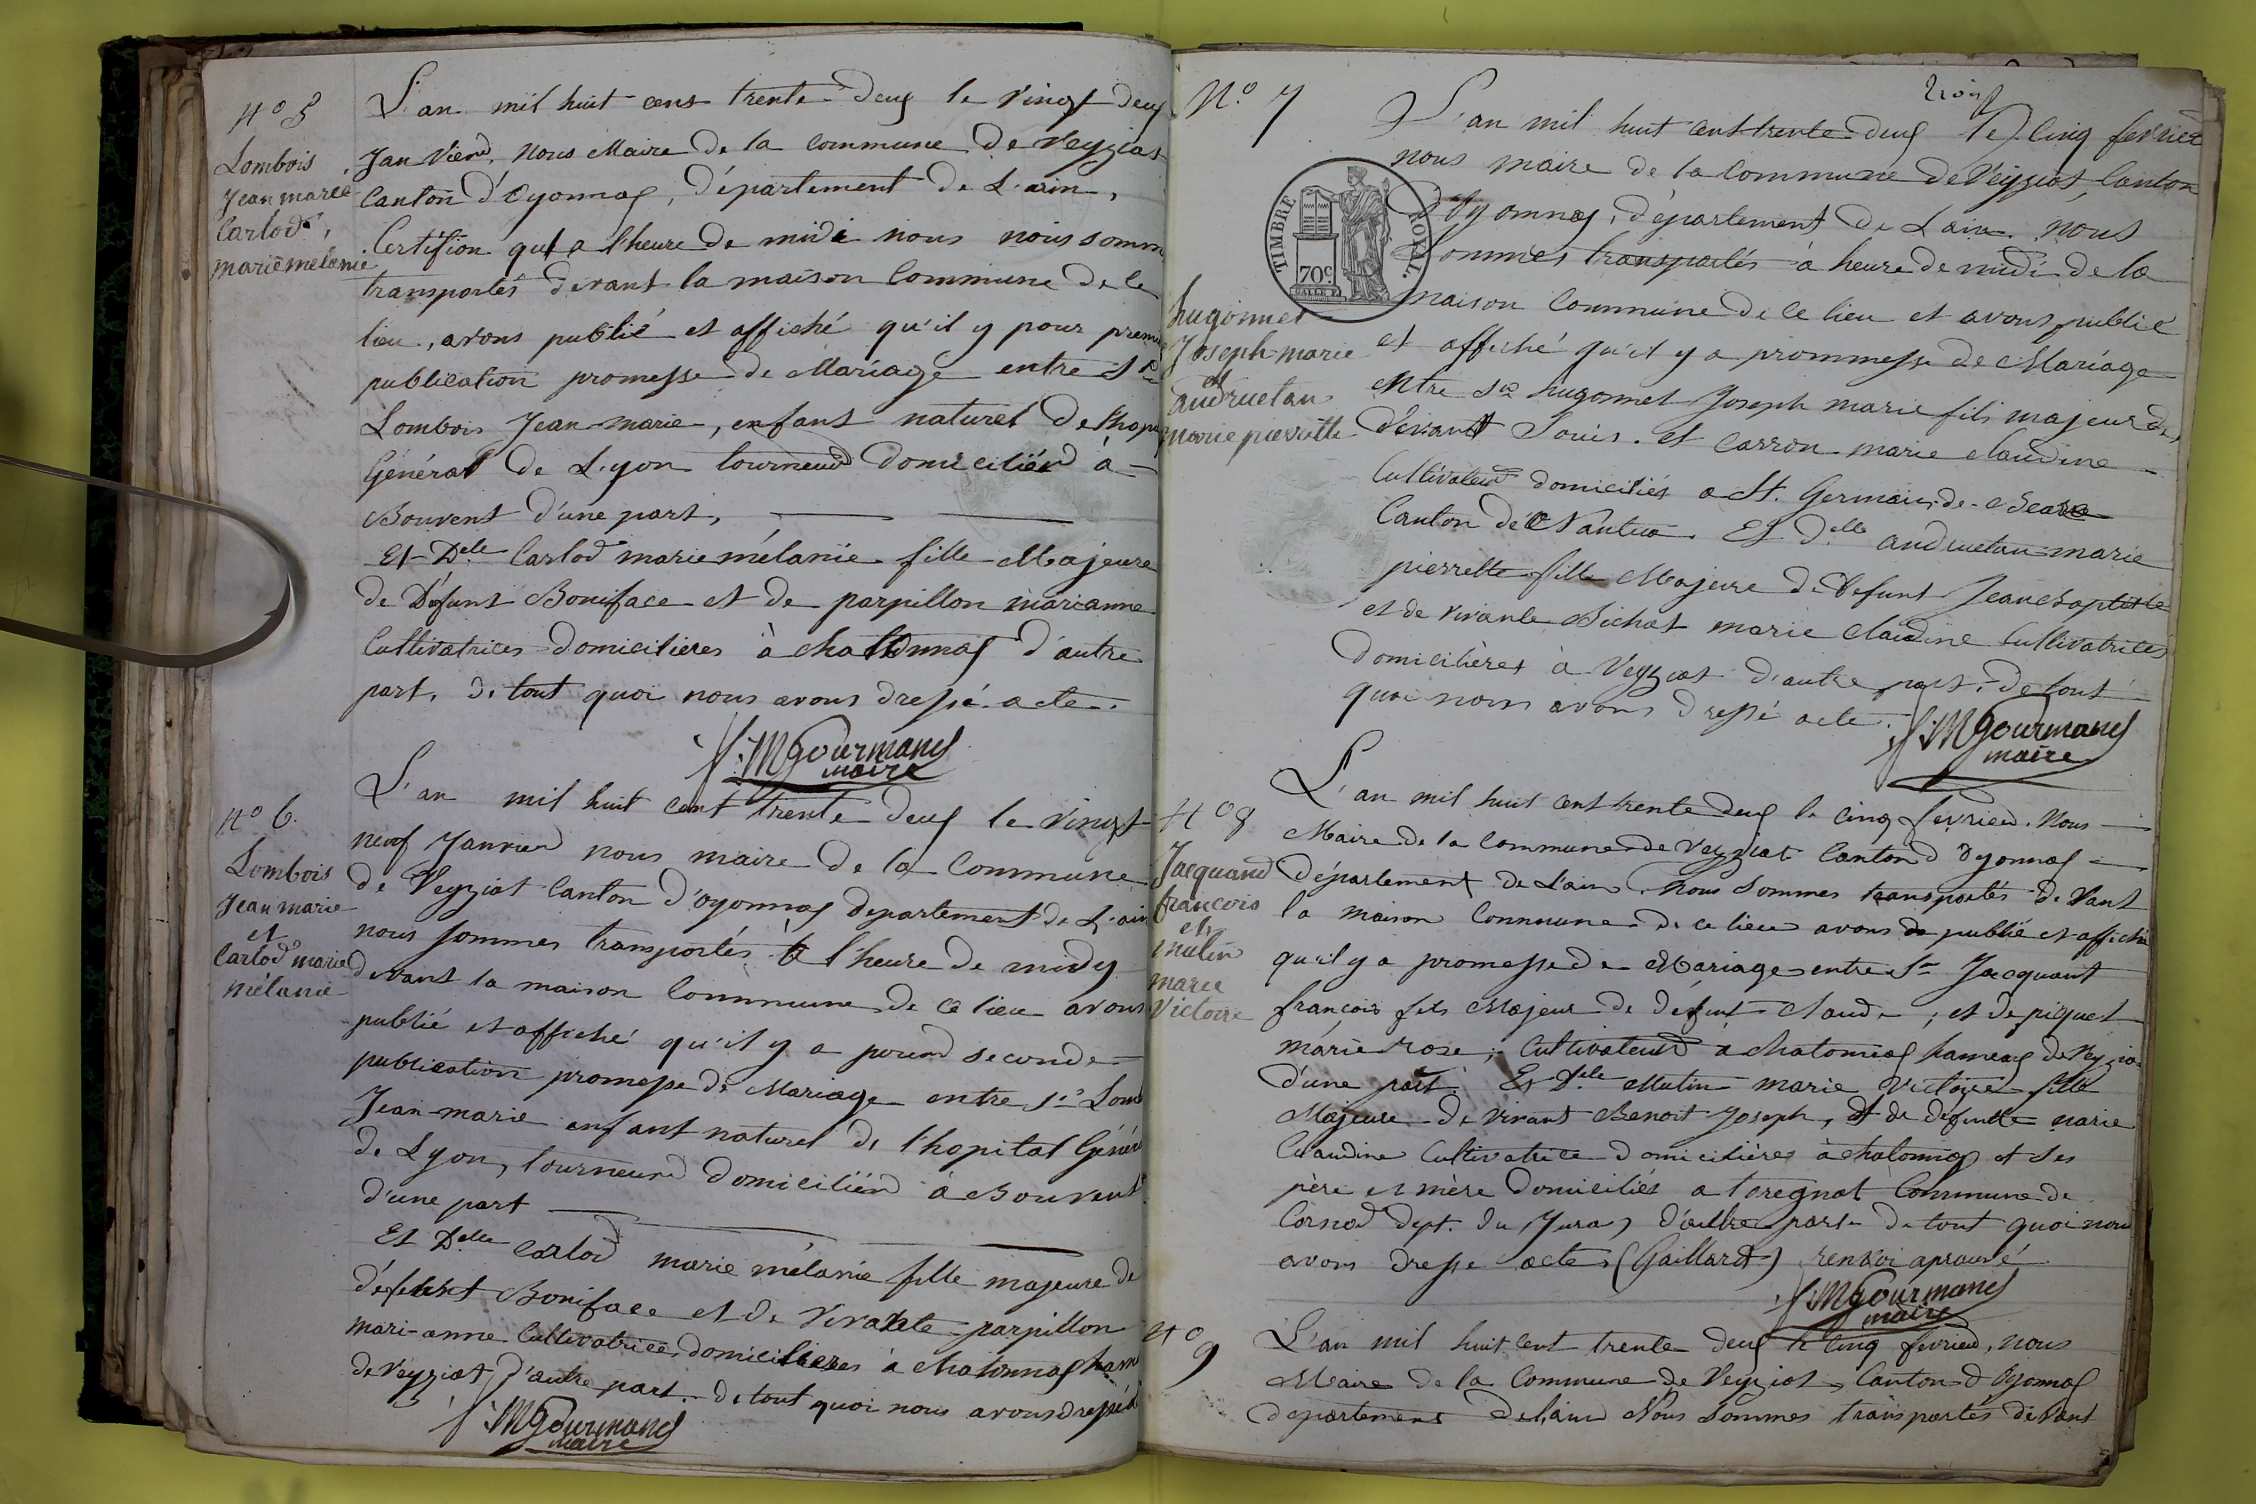 N° 5
Lombois
Jean marie
Carlod,
marie mélanie
L'an mil huit cens trente deux le Vingt deux
Janvier, nous Maire de la commune de Veyziat
Canton d'Oyonnax, département de L'ain,
Certifion qu'a l'heure de midi nous nous somm
transportés devant la maison Commune de ce
lieu, avons publié et affiché qu'il y pour premiè
publication promesse de Mariage entre Sr
Lombois Jean-marie, enfant naturel de l'hopi
Général de Lyon tourneur domicilier à
Bouvent d'une part,
Et Delle Carlod marie mélanie fille Majeure
de Défunt Boniface et de parpillon marianne
Cultivatrices domicilieres à chatonnax d'autre
part, de tout quoi nous avons dressé acte.
J.M Gourmand
maire
N° 6.
Lombois
Jean marie
et
Carlod marie
mélanie
L'an mil huit cent trente deux le Vingt
neuf Janvier nous maire de la Commune
de Veyziat Canton d'oyonnax département de L'ain
nous sommes transportés à l'heure de midy
devant la maison Commune de ce lieu avons
publié et affiché qu'il y a pour seconde
publication promesse de Mariage entre Sr Lomb
Jean-marie enfant naturel de l'hopital Géner
de Lyon, tourneur domicilier à Bouvent
d'une part
Et Delle Carlod marie mélanie fille majeure de
défunt Boniface et de Vivante parpillon
mari-anne Cultivatrices domicilieres à chatonnax ham
de Veyziat d'autre part. de tout quoi nous avons dressé a
J.M Gourmand
maire
trois
N° 7
hugonnet
Joseph-marie
et
andruetan
marie pierrette
TIMBRE ROYAL
70 c
L'an mil huit cent trente deux le cinq février
nous maire de la Commune de Veyziat, Canton
d'Oyonnax, département de L'ain. nous
sommes transportés à heure de midi de la
maison Commune de ce lieu et avons publié
et affiché qu'il y a prommesse de Mariage
entre Sr hugonnet Joseph marie fils majeur de
vivant Louis. et Carron marie Claudine
Cultivateur domiciliés a St. Germain-de-Beard
Canton de Nantua. Et Delle andruetan marie
pierrette fille Majeure de Defunt Jean Baptiste
et de vivante Bichat marie Claudine Cultivatrices
domicilières à Veyziat d'autre part, de tout
quoi nous avons dressé acte.
J.M Gourmand
maire
N° 8
Jacquand
francois
et
mutin
marie
Victoire
L'an mil huit cent trente deux le cinq fevrier. Nous
Maire de la Commune de Veyziat Canton d'Oyonnax
département de L'ain. Nous Sommes transportés devant
la maison Commune de ce lieu avons publié et affiché
qu'il y a promesse de Mariage entre Sr Jacquant
francois fils Majeur de défunt Claude, et de piquet
marie rose, Cultivateur à chatonnax hameau de Veyzia
d'une part. Et Delle Mutin marie Victoire fille
Majeure de Vivant Benoit Joseph, et de defunte marie
Claudine Cultivatrice domicilières à chatonnax et Ses
père et mère Domiciliés a toregnat Commune de
Cornod Dept. du Jura, d'autre part. de tout quoi nous
avons dresse acte (Gaillard) renvoi aprouvé
J.M Gourmand
maire
N° 9
L'an mil huit cent trente deux le cinq fevrier, nous
Maire de la Commune de Veyziat, Canton d'Oyonnax
departement de L'ain Nous Sommes transportés devant